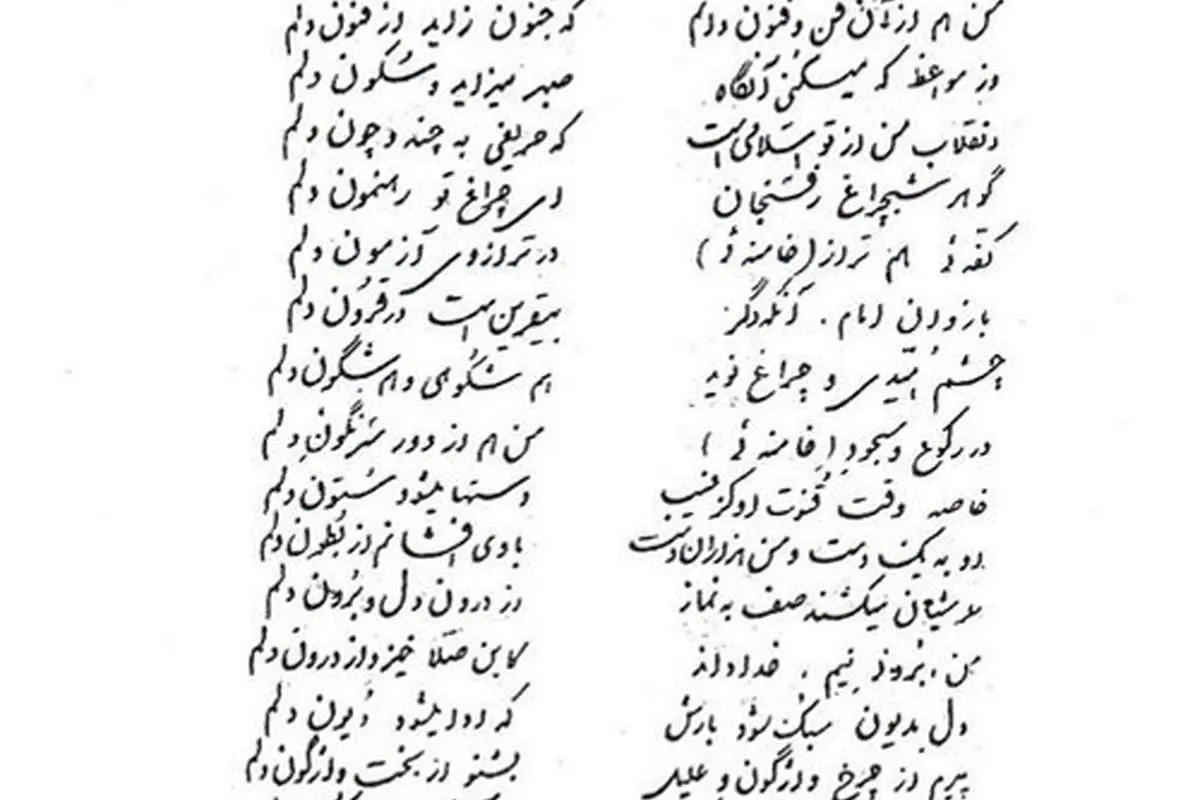 من هم از آن فن و فنون دانم که جنون زاید از فنون دلم
وز مواعظ که میکنی آنگاه صبر میزاید و سکون دلم
انقلاب من از تو اسلامی است که حریفی به چند و چون دلم
گوهر شبچراغ رفسنجان ای چراغ تو رهنمون دلم
کفه ئی هم تراز (خامنه ئی) در ترازوی آزمون دلم
بازوان امام . آنکه دگر بیقرین است در قرون دلم
چشم امیدی و چراغ نوید هم شکوهی و هم شگون دلم
در رکوع و سجود (خامنه ئی) من هم از دور سرنگون دلم
خاصه وقت قنوت او کز غیب دستها میشود ستون دلم
او به یک دست و من هزاران دست با وی افشانم از بطون دلم
عرشیان میکشند صف به نماز از درون دل و برون دلم
من . برون نیم . خدا داند کاین صلا خیزد از درون دلم
دل مدیون سبک شود بارش که ادا میشود دیون دلم
پیرم از چرخ واژگون و علیل بشنو از بخت واژگون دلم